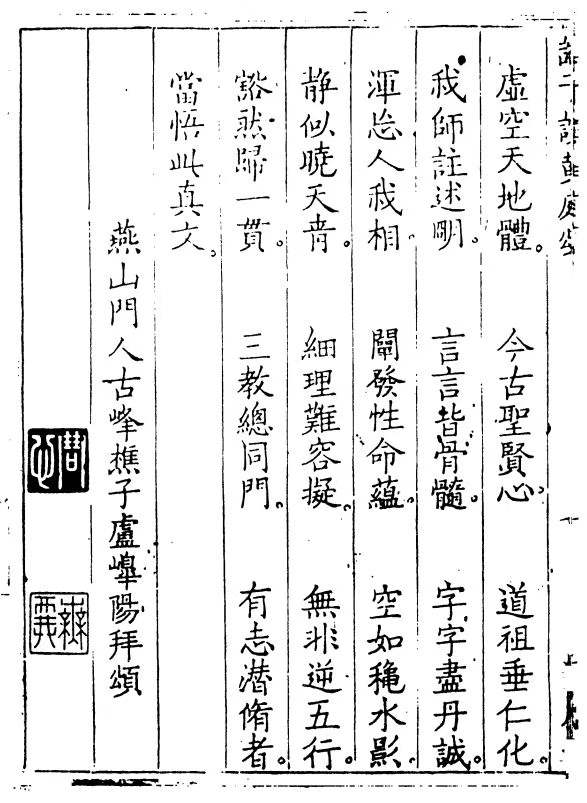 虛空天地體。今古聖賢心。道祖垂仁化。
我師註述明。言言皆骨髓。字字盡丹誠。
渾忘人我相。闡發性命蘊。空如穐水影。
静似曉天青。細理難容擬。無非逆五行。
豁然歸一貫。三教總同門。有志潛脩者。
當悟此真文。
燕山門人古峰樵子盧皡陽拜頌